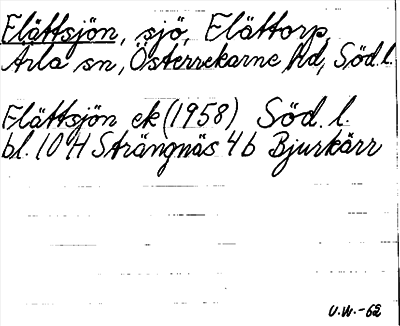 Elättsjön, sjö, Elättorp,
Ärla sn, Österrekarne hd, Söd.l.
Elättsjön ek (1958), Söd. l.
bl. 10 H Strängnäs 4 b Bjurkärr
U.W.-62